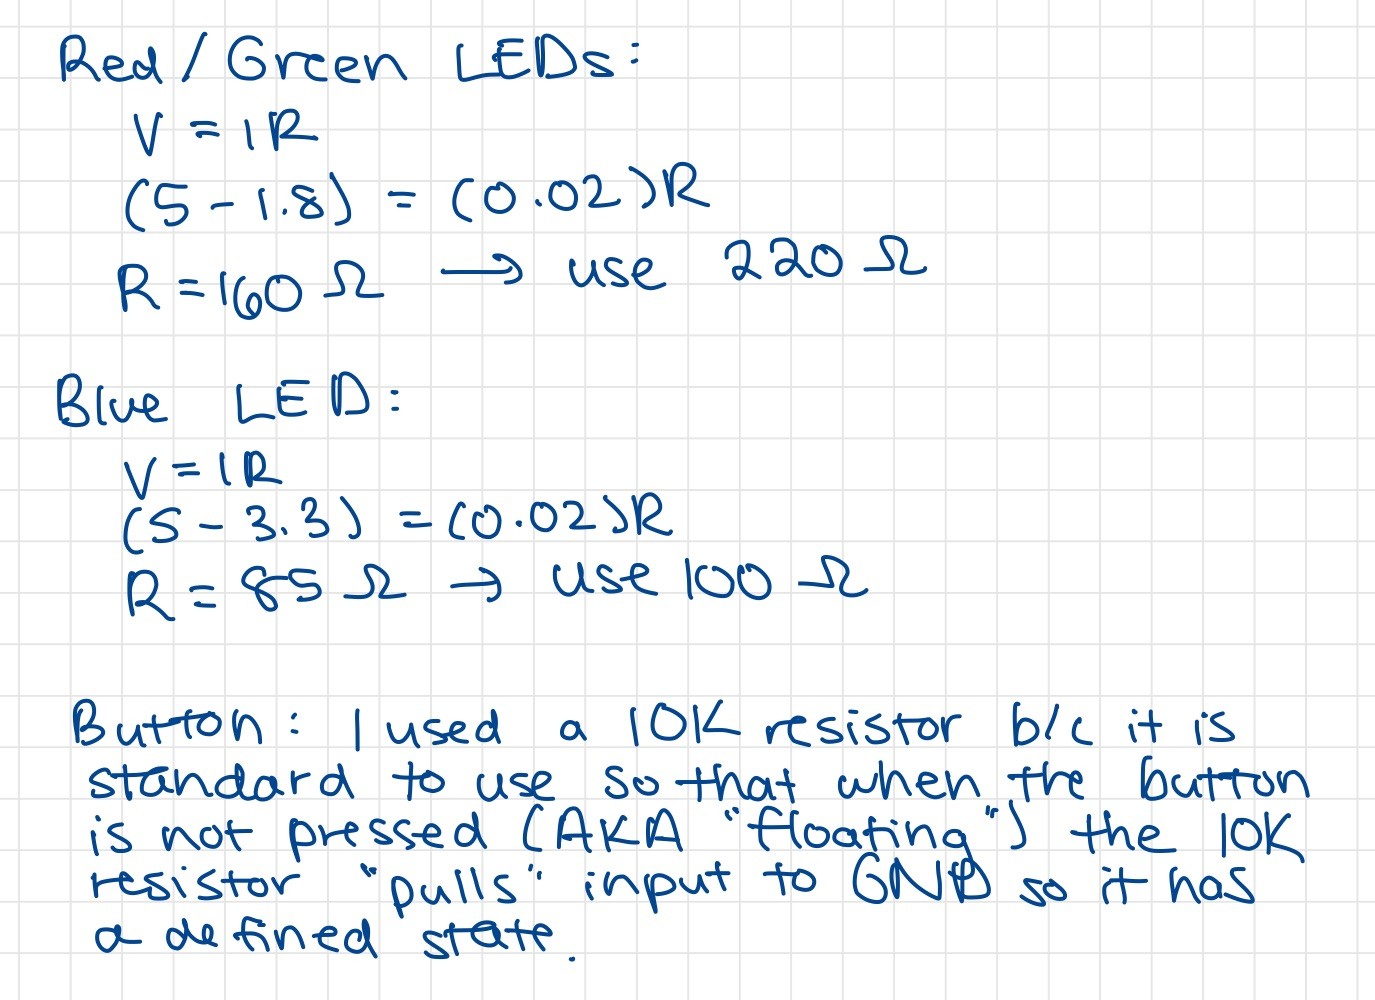 Red/Green LEDs:
V = IR
(5 - 1.8) = (0.02)R
R = 160 Ω → use 220 Ω
Blue LED:
V = IR
(5 - 3.3) = (0.02)R
R = 85 Ω → use 100 Ω
Button: I used a 10K resistor b/c it is
standard to use so that when the button
is not pressed (AKA "floating") the 10K
resistor "pulls" input to GND so it has
a defined state.